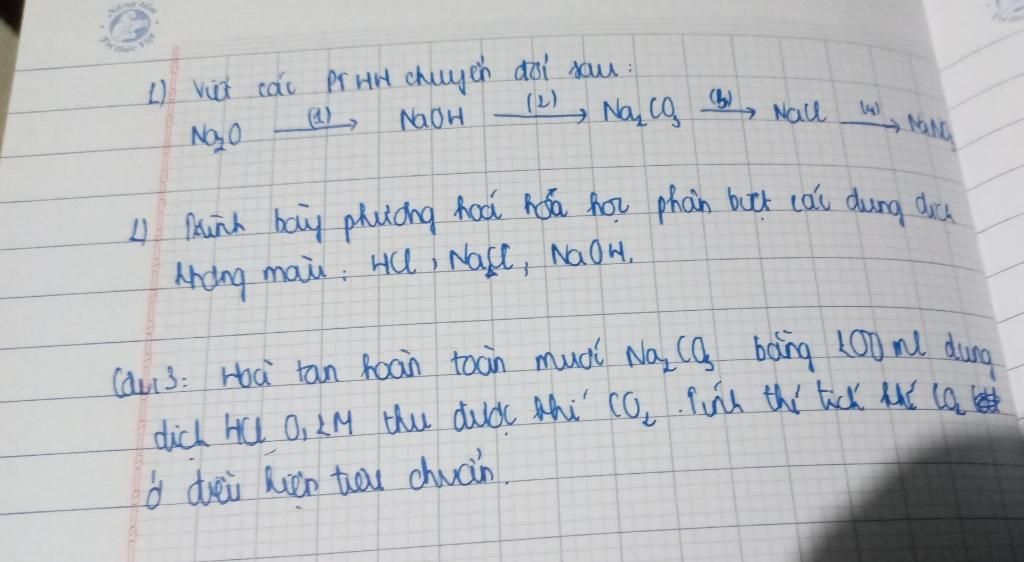 Nâng tầm
Tri thức Việt
1) Viết các PTHH chuyển đổi sau:
Na₂O (1)→ NaOH (2)→ Na₂CO₃ (3)→ NaCl (4)→ NaNO₃
2) Trình bày phương hoá hóa học phân biệt các dung dịch
không màu: HCl, NaCl, NaOH.
Câu 3: Hoà tan hoàn toàn muối Na₂CO₃ bằng 200 ml dung
dịch HCl 0,2M thu được khí CO₂. Tính thể tích khí CO₂
ở điều kiện tiêu chuẩn.